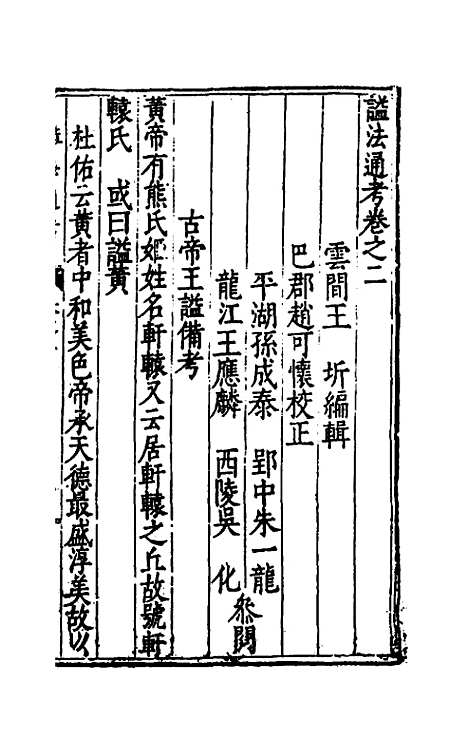 諡法通考卷之二
雲間王　圻編輯
巴郡趙可懷校正
平湖孫成泰　郢中朱一龍
龍江王應麟　西陵吳　化
叅閱
古帝王諡備考
黃帝有熊氏姬姓名軒轅又云居軒轅之丘故號軒
轅氏　或曰諡黃
杜佑云黃者中和美色帝承天德最盛淳美故以